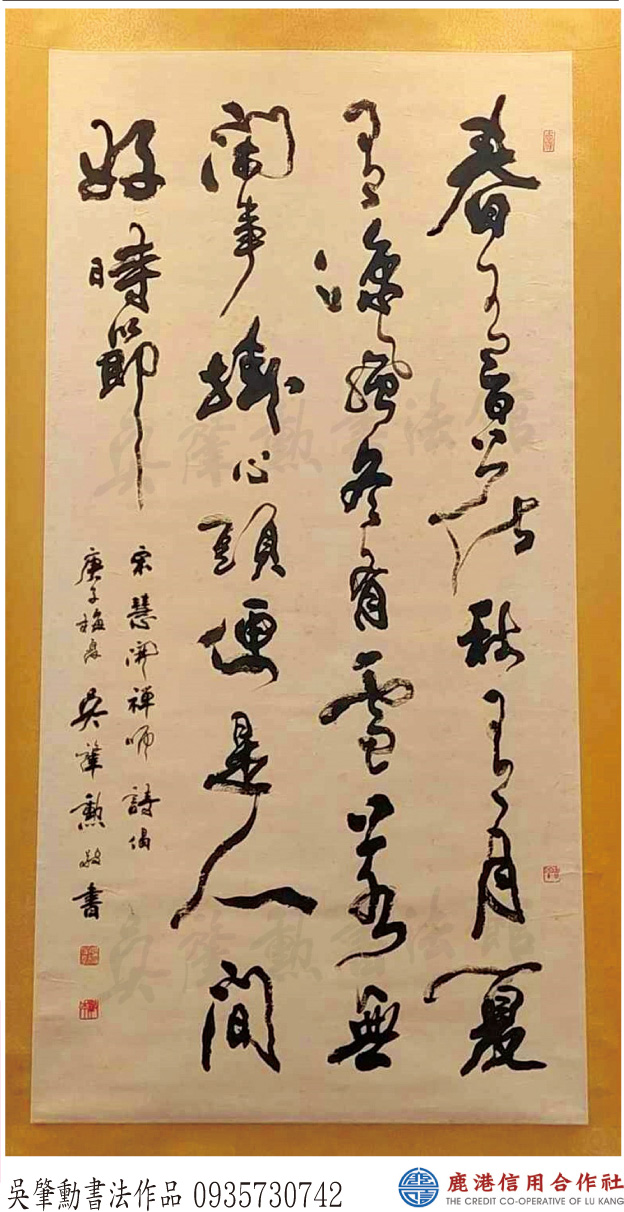 春有百花秋有月夏
有涼風冬有雪若無
閑事掛心頭便是人間
好時節
宋慧開禪師詩偈
庚子梅 吳肇勳敬書
吳肇勳書法館
吳肇勳書法館
吳肇勳書法作品 0935730742
鹿港信用合作社
THE CREDIT CO-OPERATIVE OF LU KANG